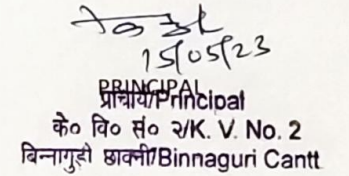 15/05/23
PRINCIPAL
प्राचार्य/Principal
के० वि० सं० २/K. V. No. 2
बिन्नागुड़ी छावनी/Binnaguri Cantt